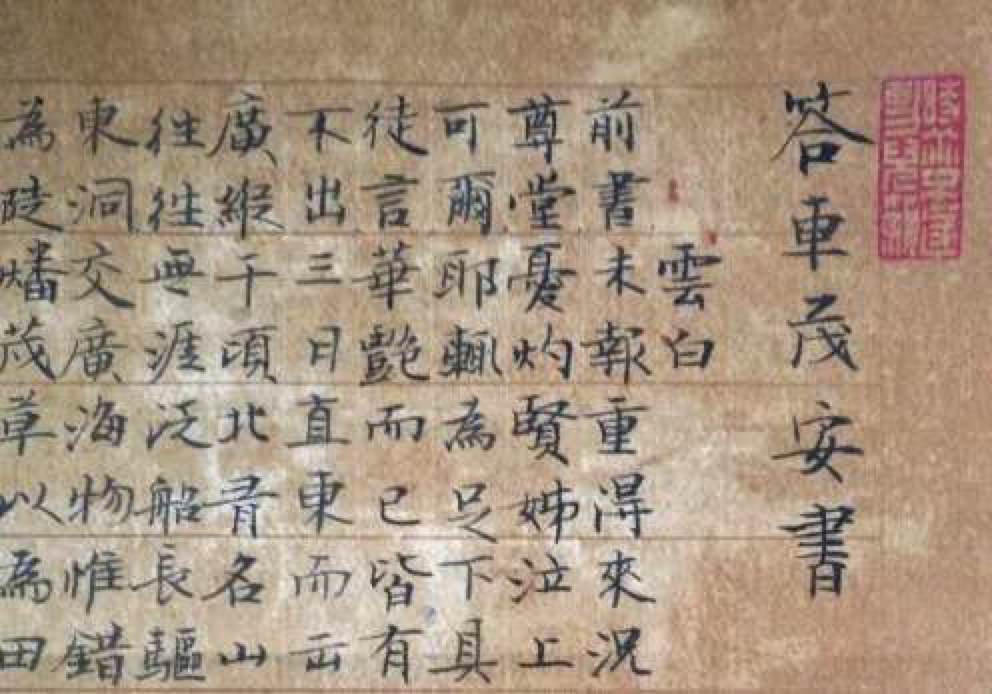 答車茂安書
雲白
前書未報重得來況
尊堂憂灼賢姊泣上
可爾耶輒為足下具
徒言華艷而已皆有
不出三日直東而出
廣縱千頃北名山
往往無涯泛船長驅
東洞交廣海物惟錯
為陂燔茂草以為田